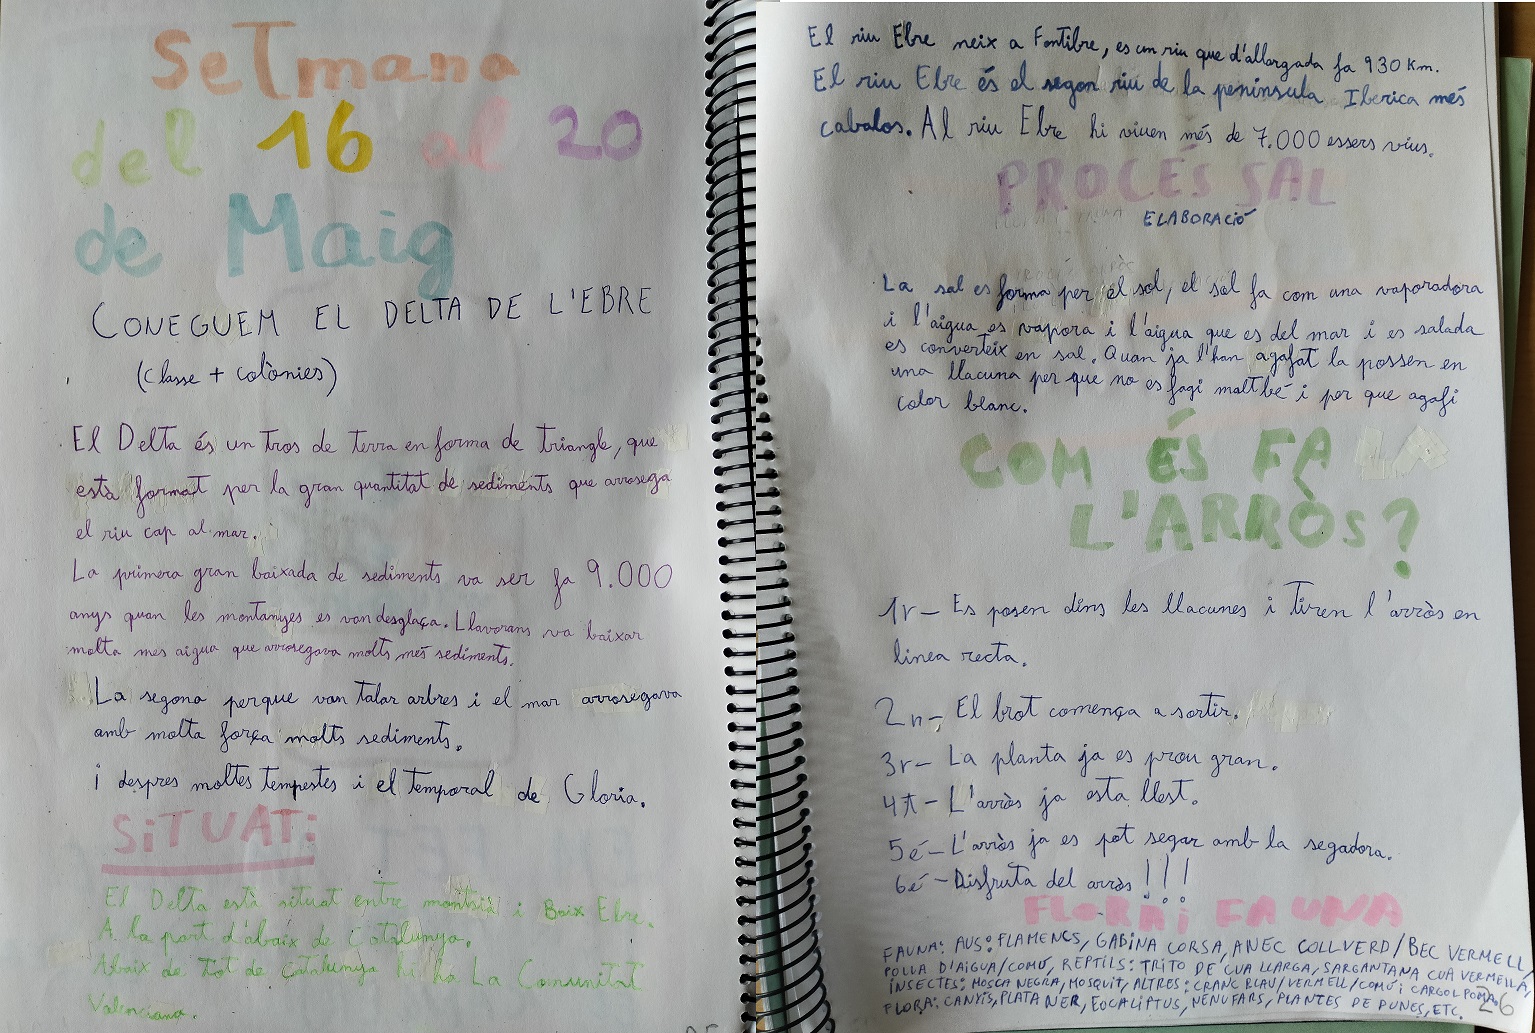 Setmana
del 16 al 20
de Maig
CONEGUEM EL DELTA DE L'EBRE
(classe + colònies)
El Delta és un tros de terra en forma de triangle, que
està format per la gran quantitat de sediments que arrosega
el riu cap al mar.
La primera gran baixada de sediments va ser fa 9.000
anys quan les montanyes es van desglaça. Llavorans va baixar
molta mes aigua que arrosegava molts més sediments.
La segona perque van talar arbres i el mar arrosegava
amb molta força molts sediments.
i despres moltes tempestes i el temporal de Gloria.
SiTUAT:
El Delta està situat entre montsià i Baix Ebre.
A la part d'abaix de Catalunya.
Abaix de tot de Catalunya hi ha La Comunitat
Valenciana.
El riu Ebre neix a Fontibre, es un riu que d'allargada fa 930 Km.
El riu Ebre és el segon riu de la peninsula Iberica més
cabalos. Al riu Ebre hi viuen més de 7.000 essers vius.
PROCÉS SAL
ELABORACIÓ
La sal es forma per el sol, el sol fa com una vaporadora
i l'aigua es vapora i l'aigua que es del mar i es salada
es converteix en sal. Quan ja l'han agafat la possen en
una llacuna per que no es fagi maltbé i per que agafi
color blanc.
COM ÉS FA
L'ARRÒS?
1r- Es posen dins les llacunes i tiren l'arròs en
linea recta.
2n- El brot comença a sortir.
3r- La planta ja es prou gran.
4t- L'arròs ja esta llest.
5é- L'arròs ja es pot segar amb la segadora.
6é- Disfruta del arròs!!!
FLORA i FAUNA
FAUNA: AUS: FLAMENCS, GABINA CORSA, ANEC COLLVERD/BEC VERMELL,
POLLA D'AIGUA/COMÚ, REPTILS: TRITO DE CUA LLARGA, SARGANTANA CUA VERMELLA,
INSECTES: MOSCA NEGRA, MOSQUIT, ALTRES: CRANC BLAU/VERMELL/COMÚ i CARGOL POMA.
FLORA: CANYIS, PLATANER, EOCALIPTUS, NENUFARS, PLANTES DE DUNES, ETC.
26